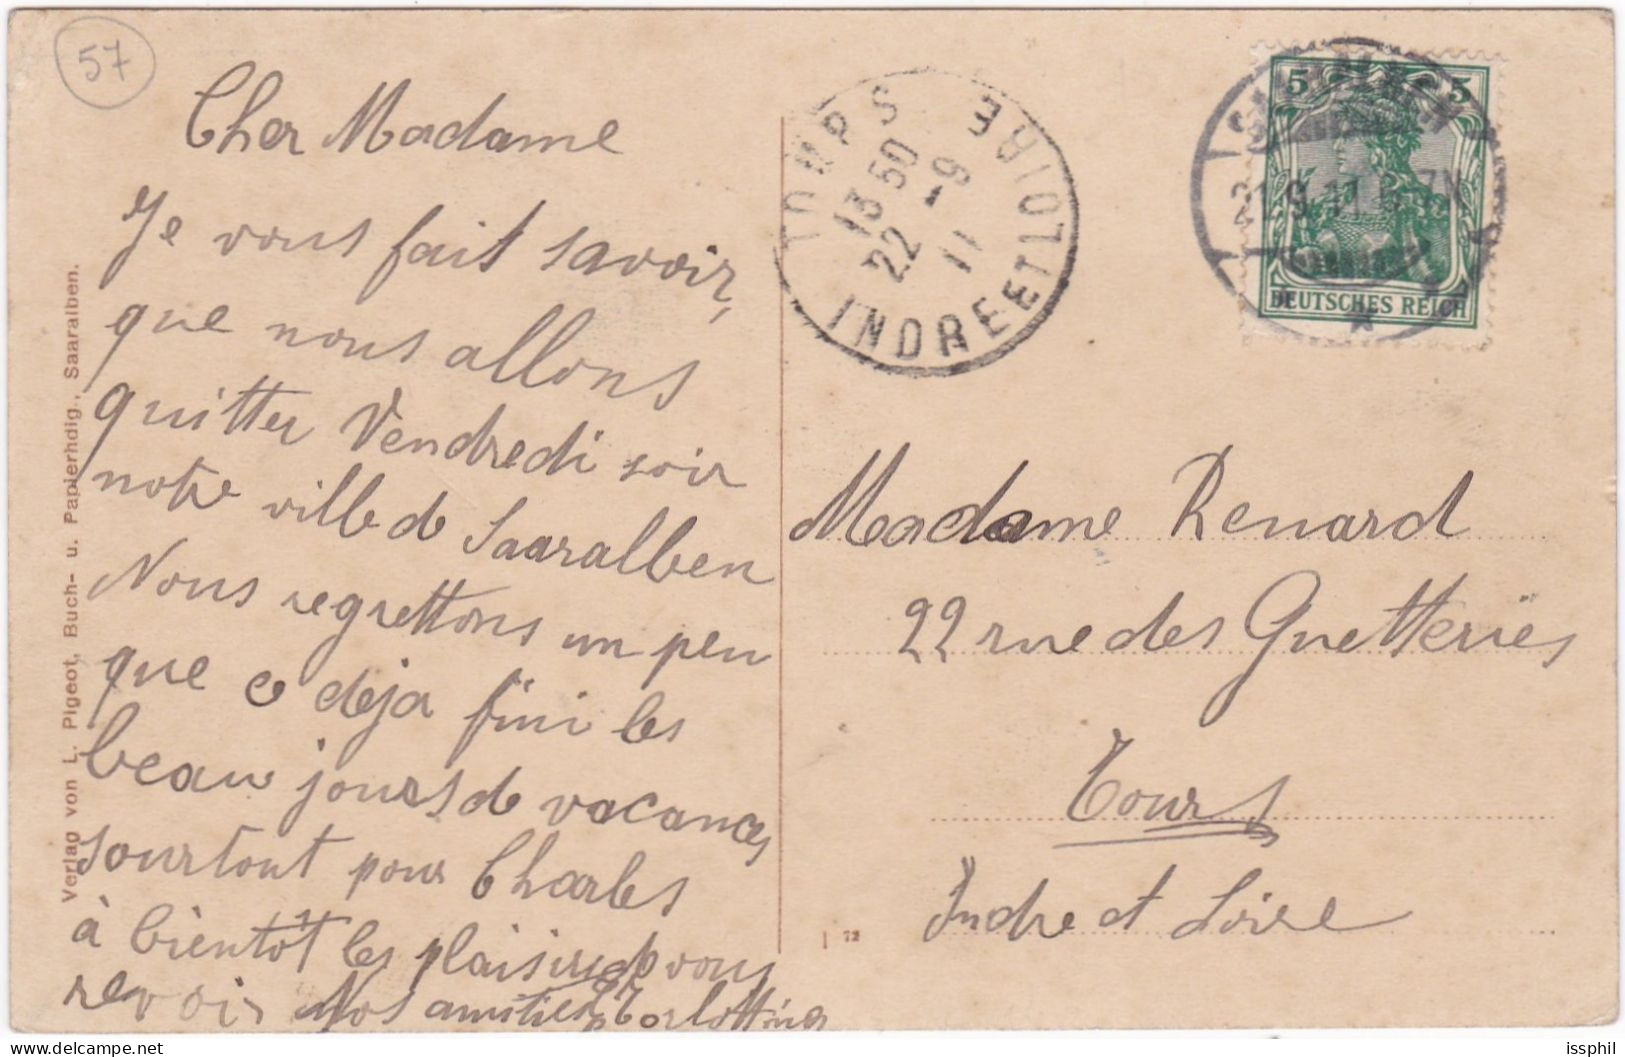 57
Cher Madame
Je vous fait savoir,
que nous allons
quitter Vendredi soir
notre ville de Saaralben
Nous regrettons un peu
que c déja fini les
beau jours de vacances
sourtout pour Charles
à bientôt les plaisir de vous
revoir Nos amitiés
Verlag von L. Pigeot, Buch- u. Papierhdlg., Saaralben.
TOURS
13 50
22 -9
11
INDRE ET LOIRE
5 5
21.9.11
DEUTSCHES REICH
Madame Renard
22 rue des Guetteries
Tours
Indre et Loire
72
issphil